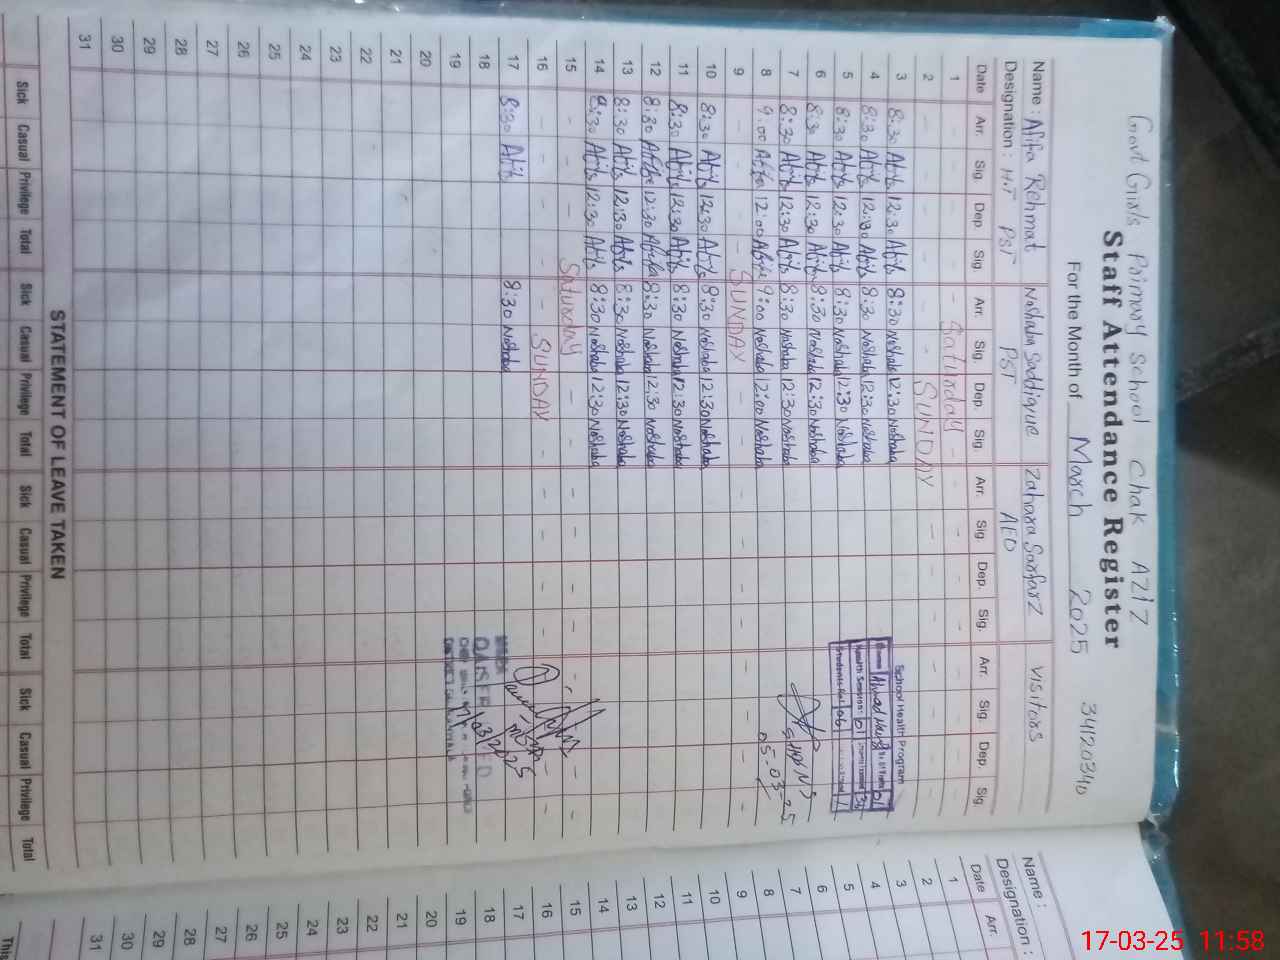 Govt Girls Primary School Chak Aziz
34120340
Staff Attendance Register
For the Month of March 2025
Name : Afifa Rehmat Noshaba Saddique Zahara Sarfarz Visitors
Designation : H.T PST PST AEO
Date Arr. Sig. Dep. Sig. Arr. Sig. Dep. Sig. Arr. Sig Dep. Sig. Arr. Sig. Dep. Sig.
1 Saturday
2 SUNDAY
3 8:30 Afifa 12:30 Afifa 8:30 Noshaba 12:30 Noshaba
4 8:30 Afifa 12:30 Afifa 8:30 Noshaba 12:30 Noshaba
5 8:30 Afifa 12:30 Afifa 8:30 Noshaba 12:30 Noshaba
6 8:30 Afifa 12:30 Afifa 8:30 Noshaba 12:30 Noshaba
7 8:30 Afifa 12:30 Afifa 8:30 Noshaba 12:30 Noshaba
8 9:00 Afifa 12:00 Afifa 9:00 Noshaba 12:00 Noshaba
9 SUNDAY
10 8:30 Afifa 12:30 Afifa 8:30 Noshaba 12:30 Noshaba
11 8:30 Afifa 12:30 Afifa 8:30 Noshaba 12:30 Noshaba
12 8:30 Afifa 12:30 Afifa 8:30 Noshaba 12:30 Noshaba
13 8:30 Afifa 12:30 Afifa 8:30 Noshaba 12:30 Noshaba
14 8:30 Afifa 12:30 Afifa 8:30 Noshaba 12:30 Noshaba
15 Saturday
16 SUNDAY
17 8:30 Afifa 8:30 Noshaba
18
19
20
21
22
23
24
25
26
27
28
29
30
31
School Health Program
05-03-25
17/03/2025
STATEMENT OF LEAVE TAKEN
Sick Casual Privilege Total Sick Casual Privilege Total Sick Casual Privilege Total Sick Casual Privilege Total
Name :
Designation :
Date Arr.
1
2
3
4
5
6
7
8
9
10
11
12
13
14
15
16
17
18
19
20
21
22
23
24
25
26
27
28
29
30
31
This
17-03-25 11:58